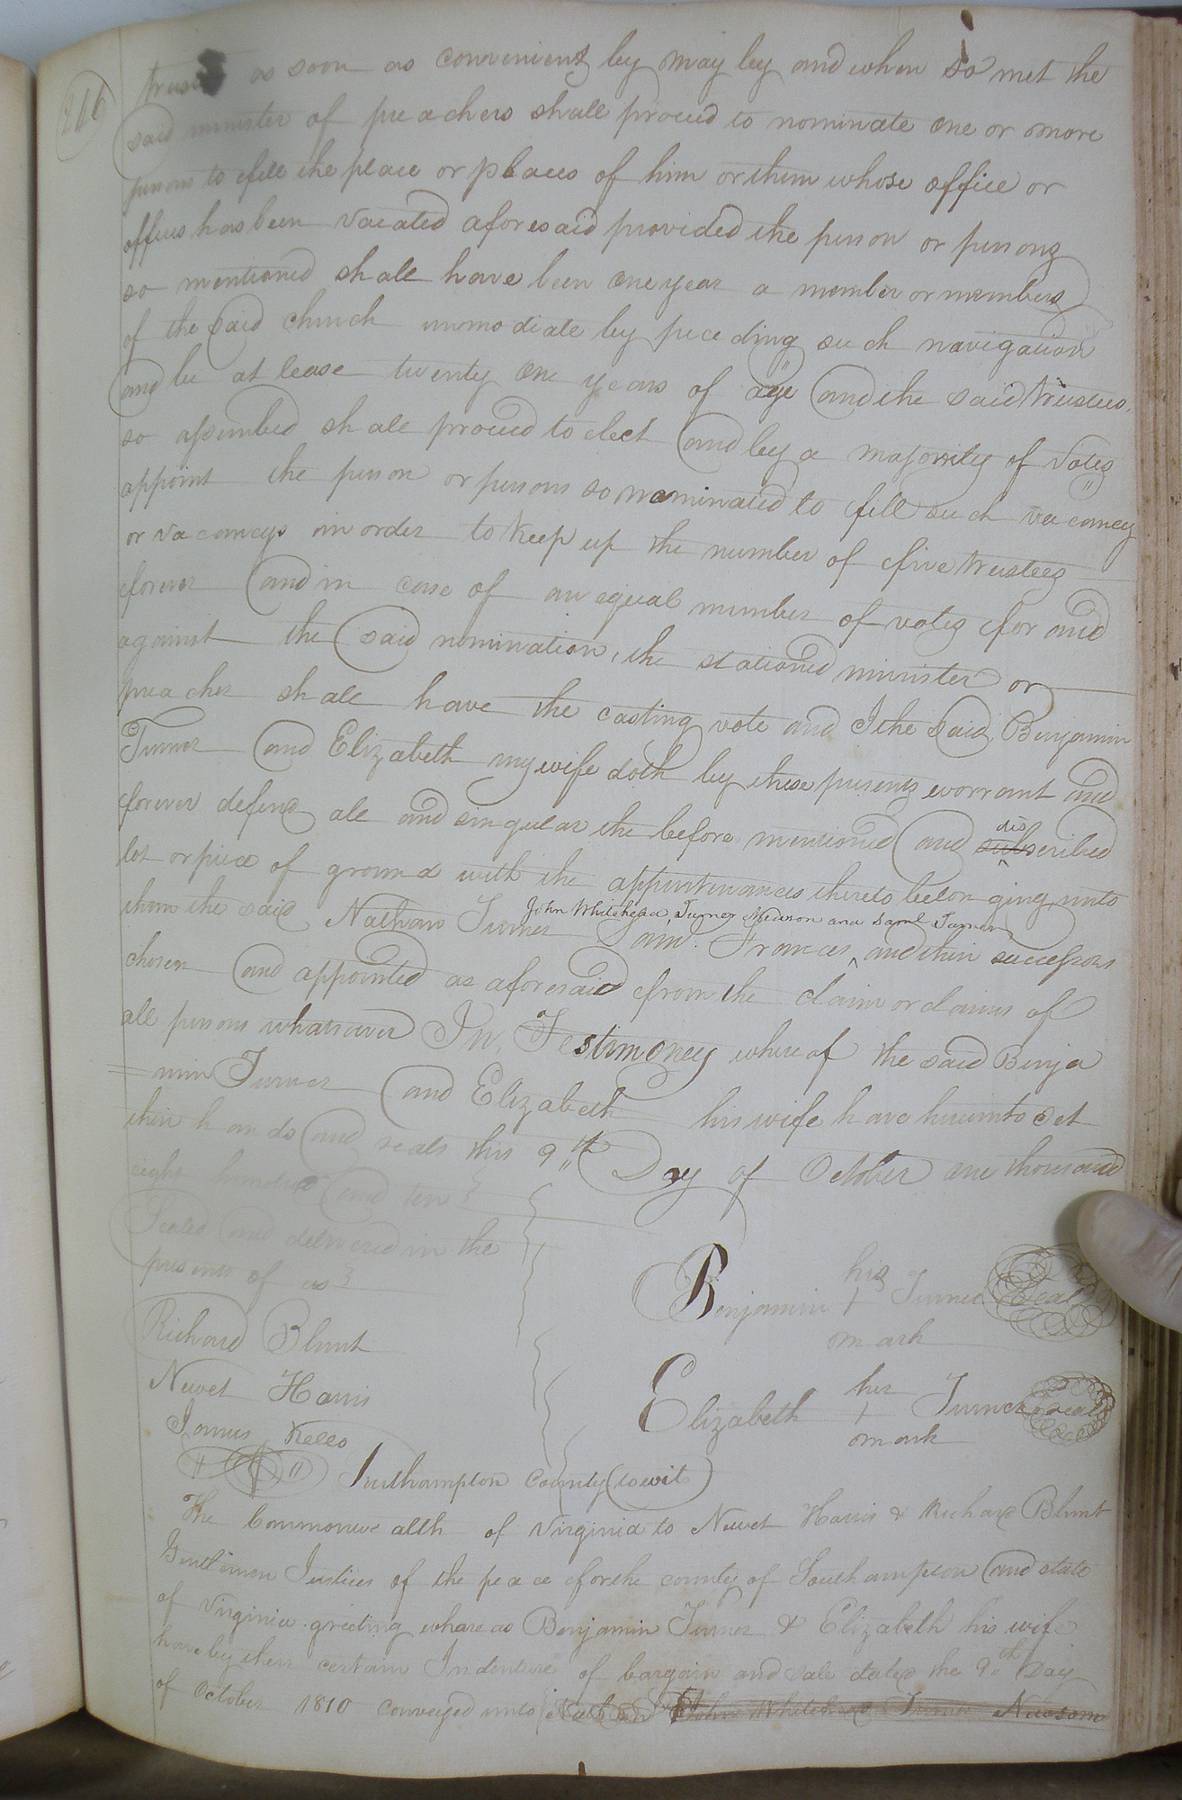 216
trustees as soon as convenient ley may ley and when so met the
said minister of preachers shall proceed to nominate one or more
persons to fill the place or places of him or them whose office or
offices has been vacated aforesaid provided the person or persons
so mentioned shall have been one year a member or members
of the said church immediate ley preceding such navigation
and be at lease twenty one years of age and the said trustees
so assembled shall proceed to elect and by a majority of votes
appoint the person or persons so nominated to fill such vacancy
or vacancys in order to keep up the number of five trustees
forever and in case of an equal number of votes for and
against the said nomination, the stationed minister or
preacher shall have the casting vote and I the said Benjamin
Turner and Elizabeth my wife doth by these presents warrant and
forever defend all and singular the before mentioned and discribed
lot or piece of ground with the appurtenances thereto belonging unto
them the said Nathan Turner John Whitehead, Turner Newsom and Saml Turner
Francis, and their successors
chosen and appointed as aforesaid from the claim or claims of
all persons whatsoever In Testimoney where of the said Benja
=min Turner and Elizabeth his wife have hereunto set
their hands and seals this 9th Day of October one thousand
eight hundred and ten
Sealed and delivered in the
presents of us
Richard Blunt
Newet Harris
James Kello
Benjamin his Turner Seal
mark
Elizabeth her Turner Seal
mark
Southampton County (to wit)
The Commonwealth of Virginia to Newet Harris & Richard Blunt
Gentlemen Justices of the peace for the county of Southampton and state
of Virginia greeting whereas Benjamin Turner & Elizabeth his wife
have by their certain Indenture of bargain and sale dated the 9th Day
of October 1810 conveyed unto Nathan John Whitehead Turner Newsom